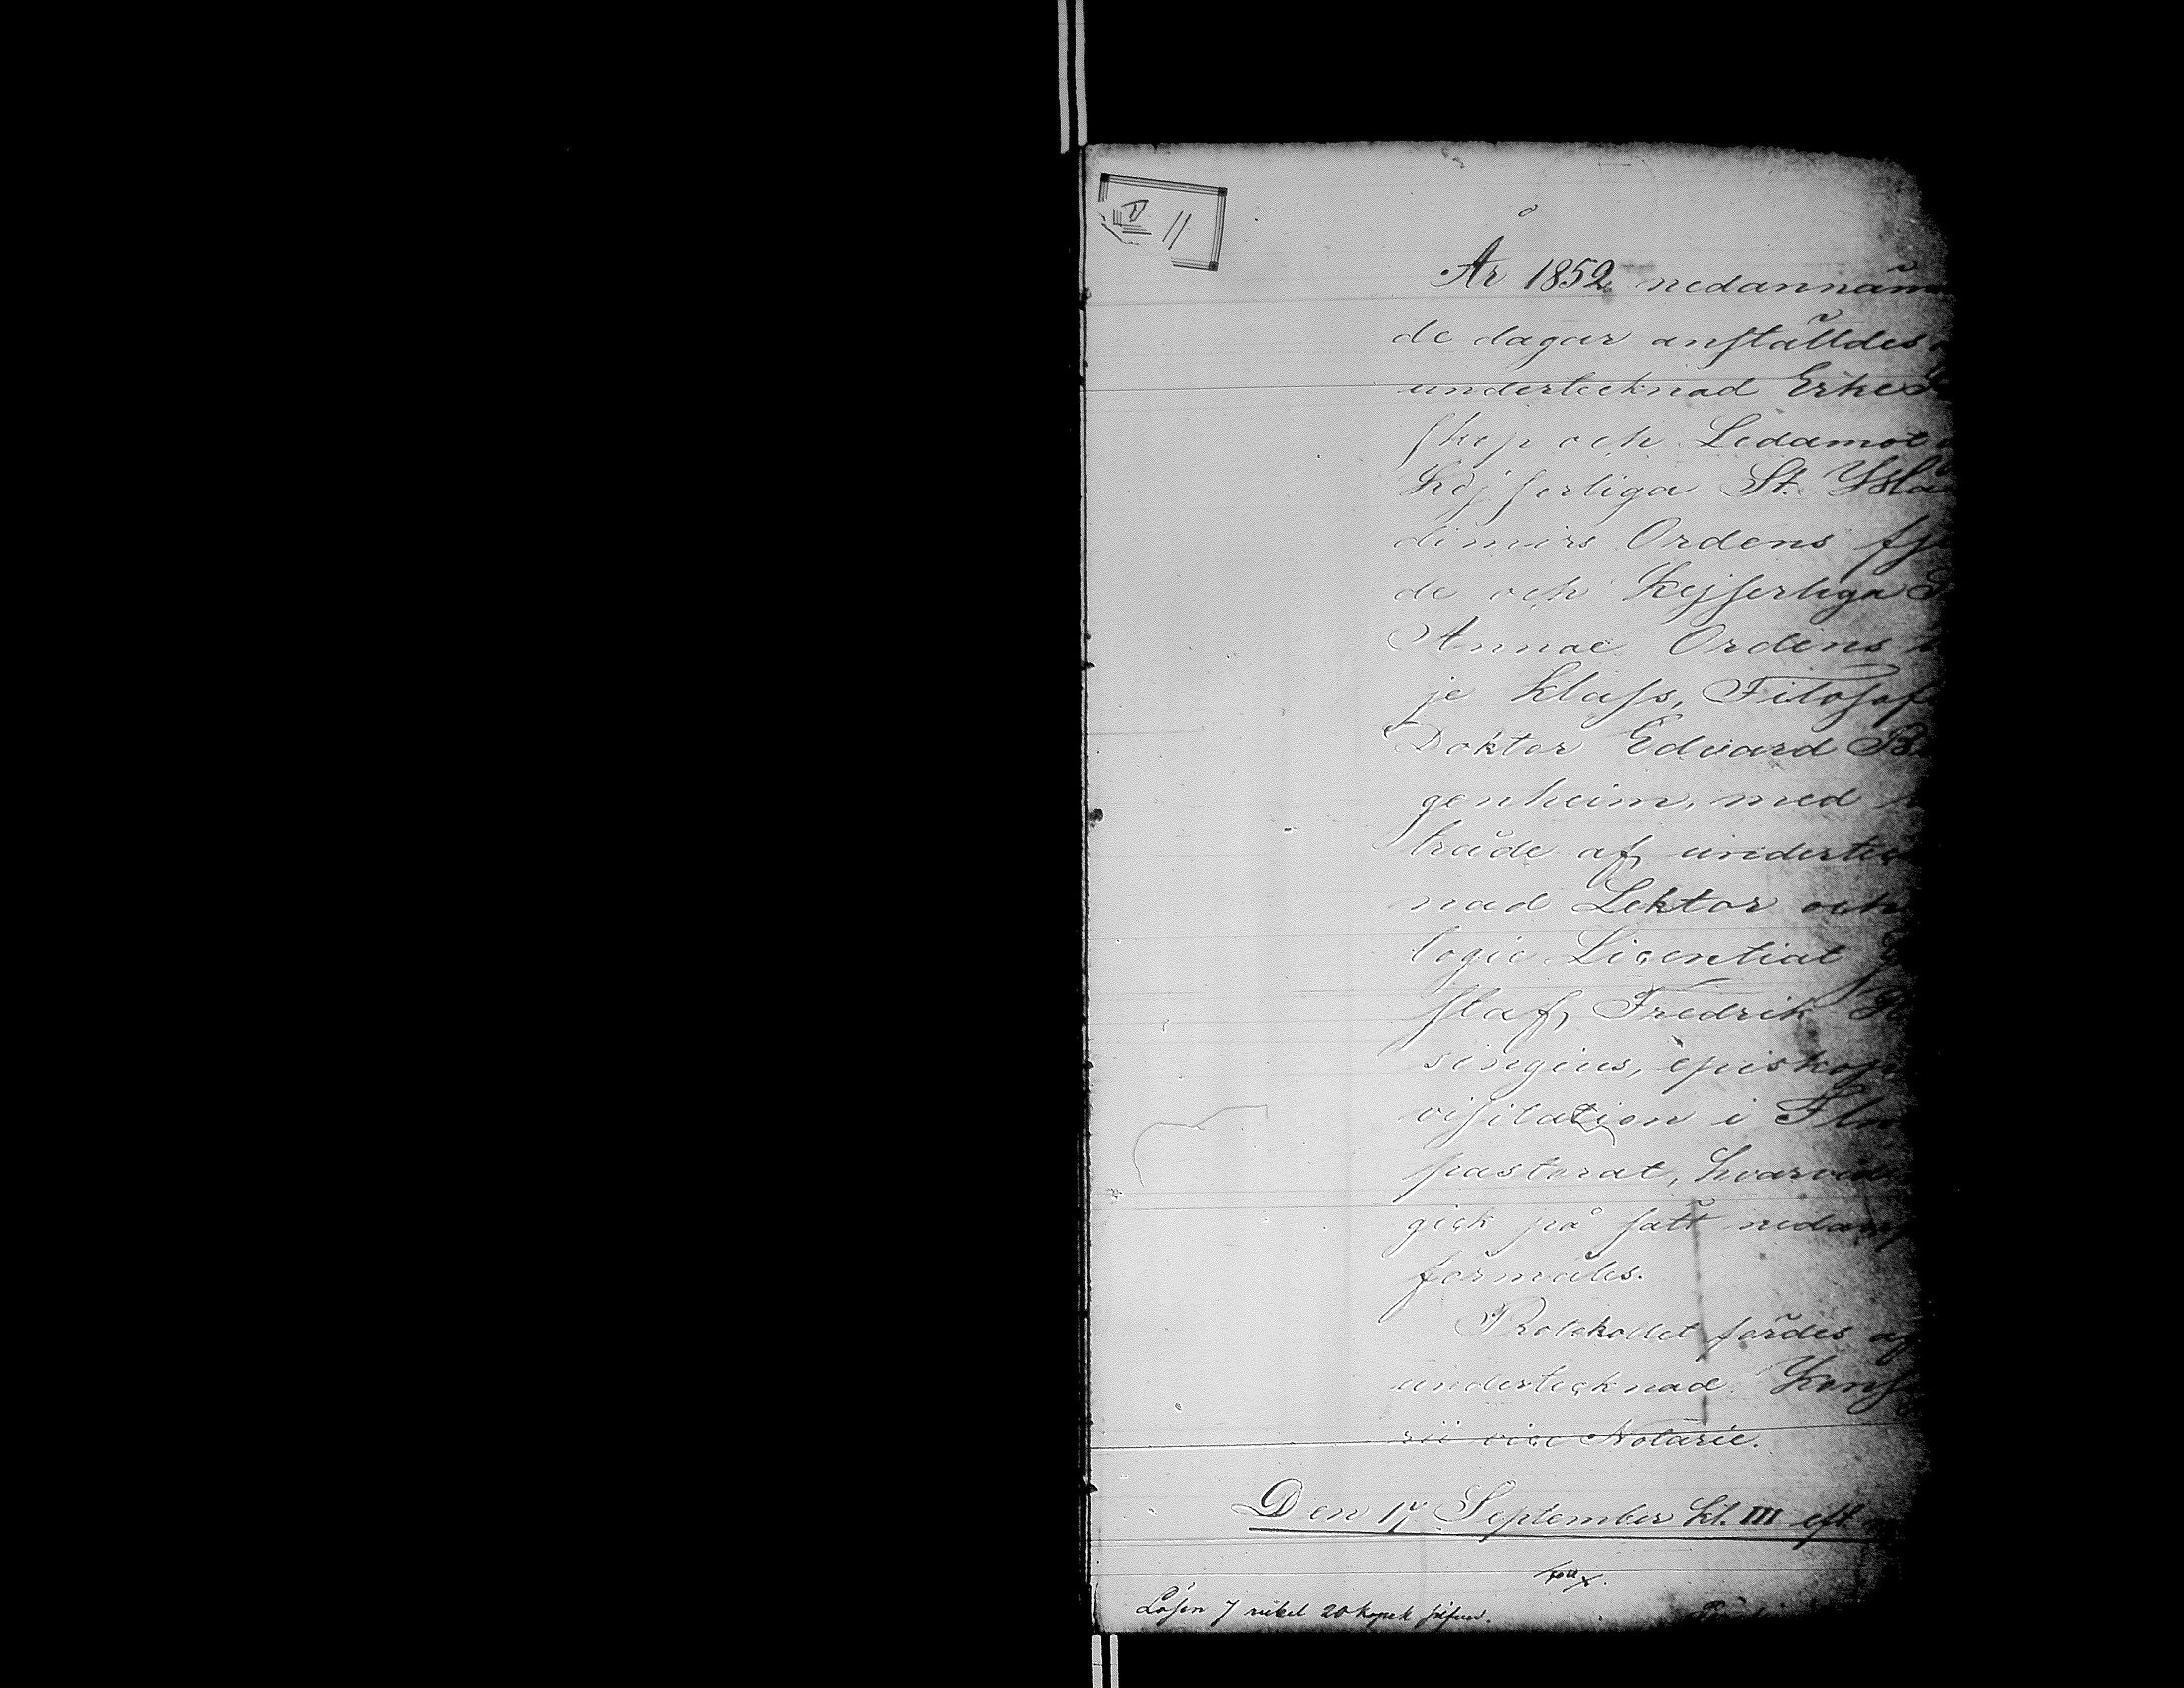 II
År 1852 nedannäm
de dagar anställdes
undertecknad Erke
skop och Ledamot
Kejserliga St. Wla
dimirs Ordens fj
de och Kejserliga
Annae Ordens
je klass, Filosof
Doktor Edvard B
genheim, med
träde af underteck
nad Lektor och
logie Licentiat
staf Fredrik He
singius, episkop
visitation i Ilm
pastorat, hvarvid
gick på sätt nedan
förmäles.
Protokollet fördes af
undertecknad Kons
rii vice Notarie.
Den 17 September kl. III eft.
Lösen 7 rubel 20 kopek silfver.